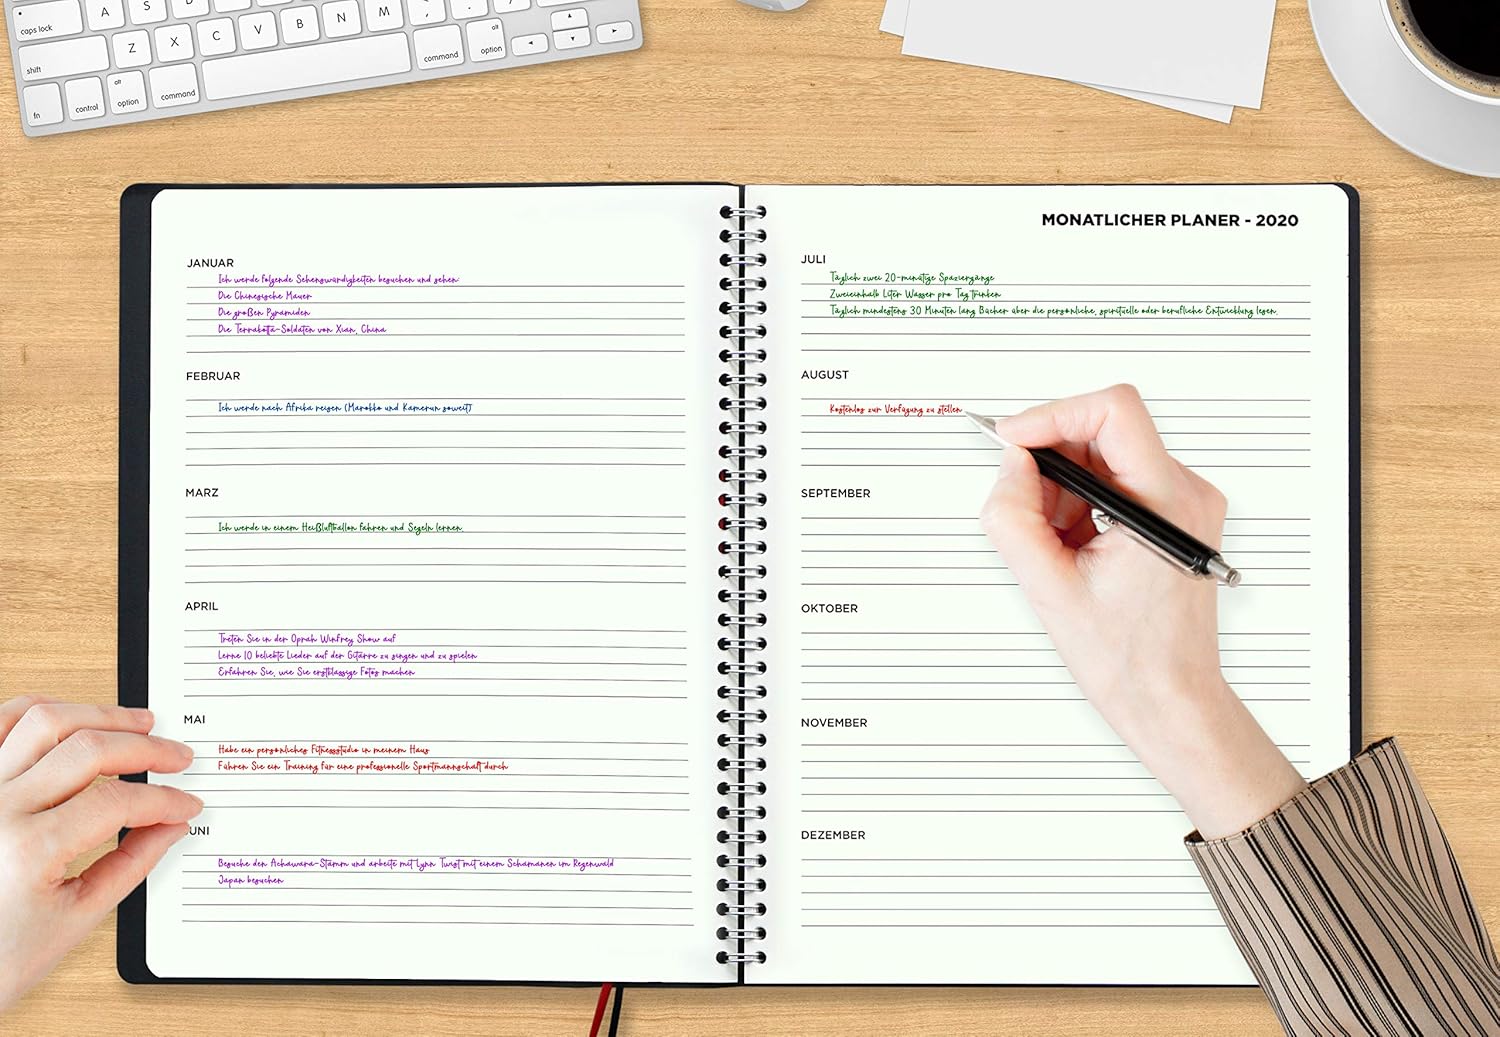 caps lock
A
S
D
shift
Z
X
C
V
B
N
M
fn
control
alt
option
command
command
alt
option
MONATLICHER PLANER - 2020
JANUAR
Ich werde folgende Sehenswürdigkeiten besuchen und sehen:
Die Chinesische Mauer
Die großen Pyramiden
Die Terrakotta-Soldaten von Xian, China
FEBRUAR
Ich werde nach Afrika reisen (Marokko und Kamerun soweit)
MARZ
Ich werde in einem Heißluftballon fahren und Segeln lernen.
APRIL
Treten Sie in der Oprah Winfrey Show auf
Lerne 10 beliebte Lieder auf der Gitarre zu singen und zu spielen
Erfahren Sie, wie Sie erstklassige Fotos machen
MAI
Habe ein persönliches Fitnessstudio in meinem Haus
Führen Sie ein Training für eine professionelle Sportmannschaft durch
UNI
Besuche den Achawara-Stamm und arbeite mit Lynn Twist mit einem Schamanen im Regenwald
Japan besuchen
JULI
Täglich zwei 20-minütige Spaziergänge
Zweieinhalb Liter Wasser pro Tag trinken
Täglich mindestens 30 Minuten lang Bücher über die persönliche, spirituelle oder berufliche Entwicklung lesen.
AUGUST
Kostenlos zur Verfügung zu stellen
SEPTEMBER
OKTOBER
NOVEMBER
DEZEMBER